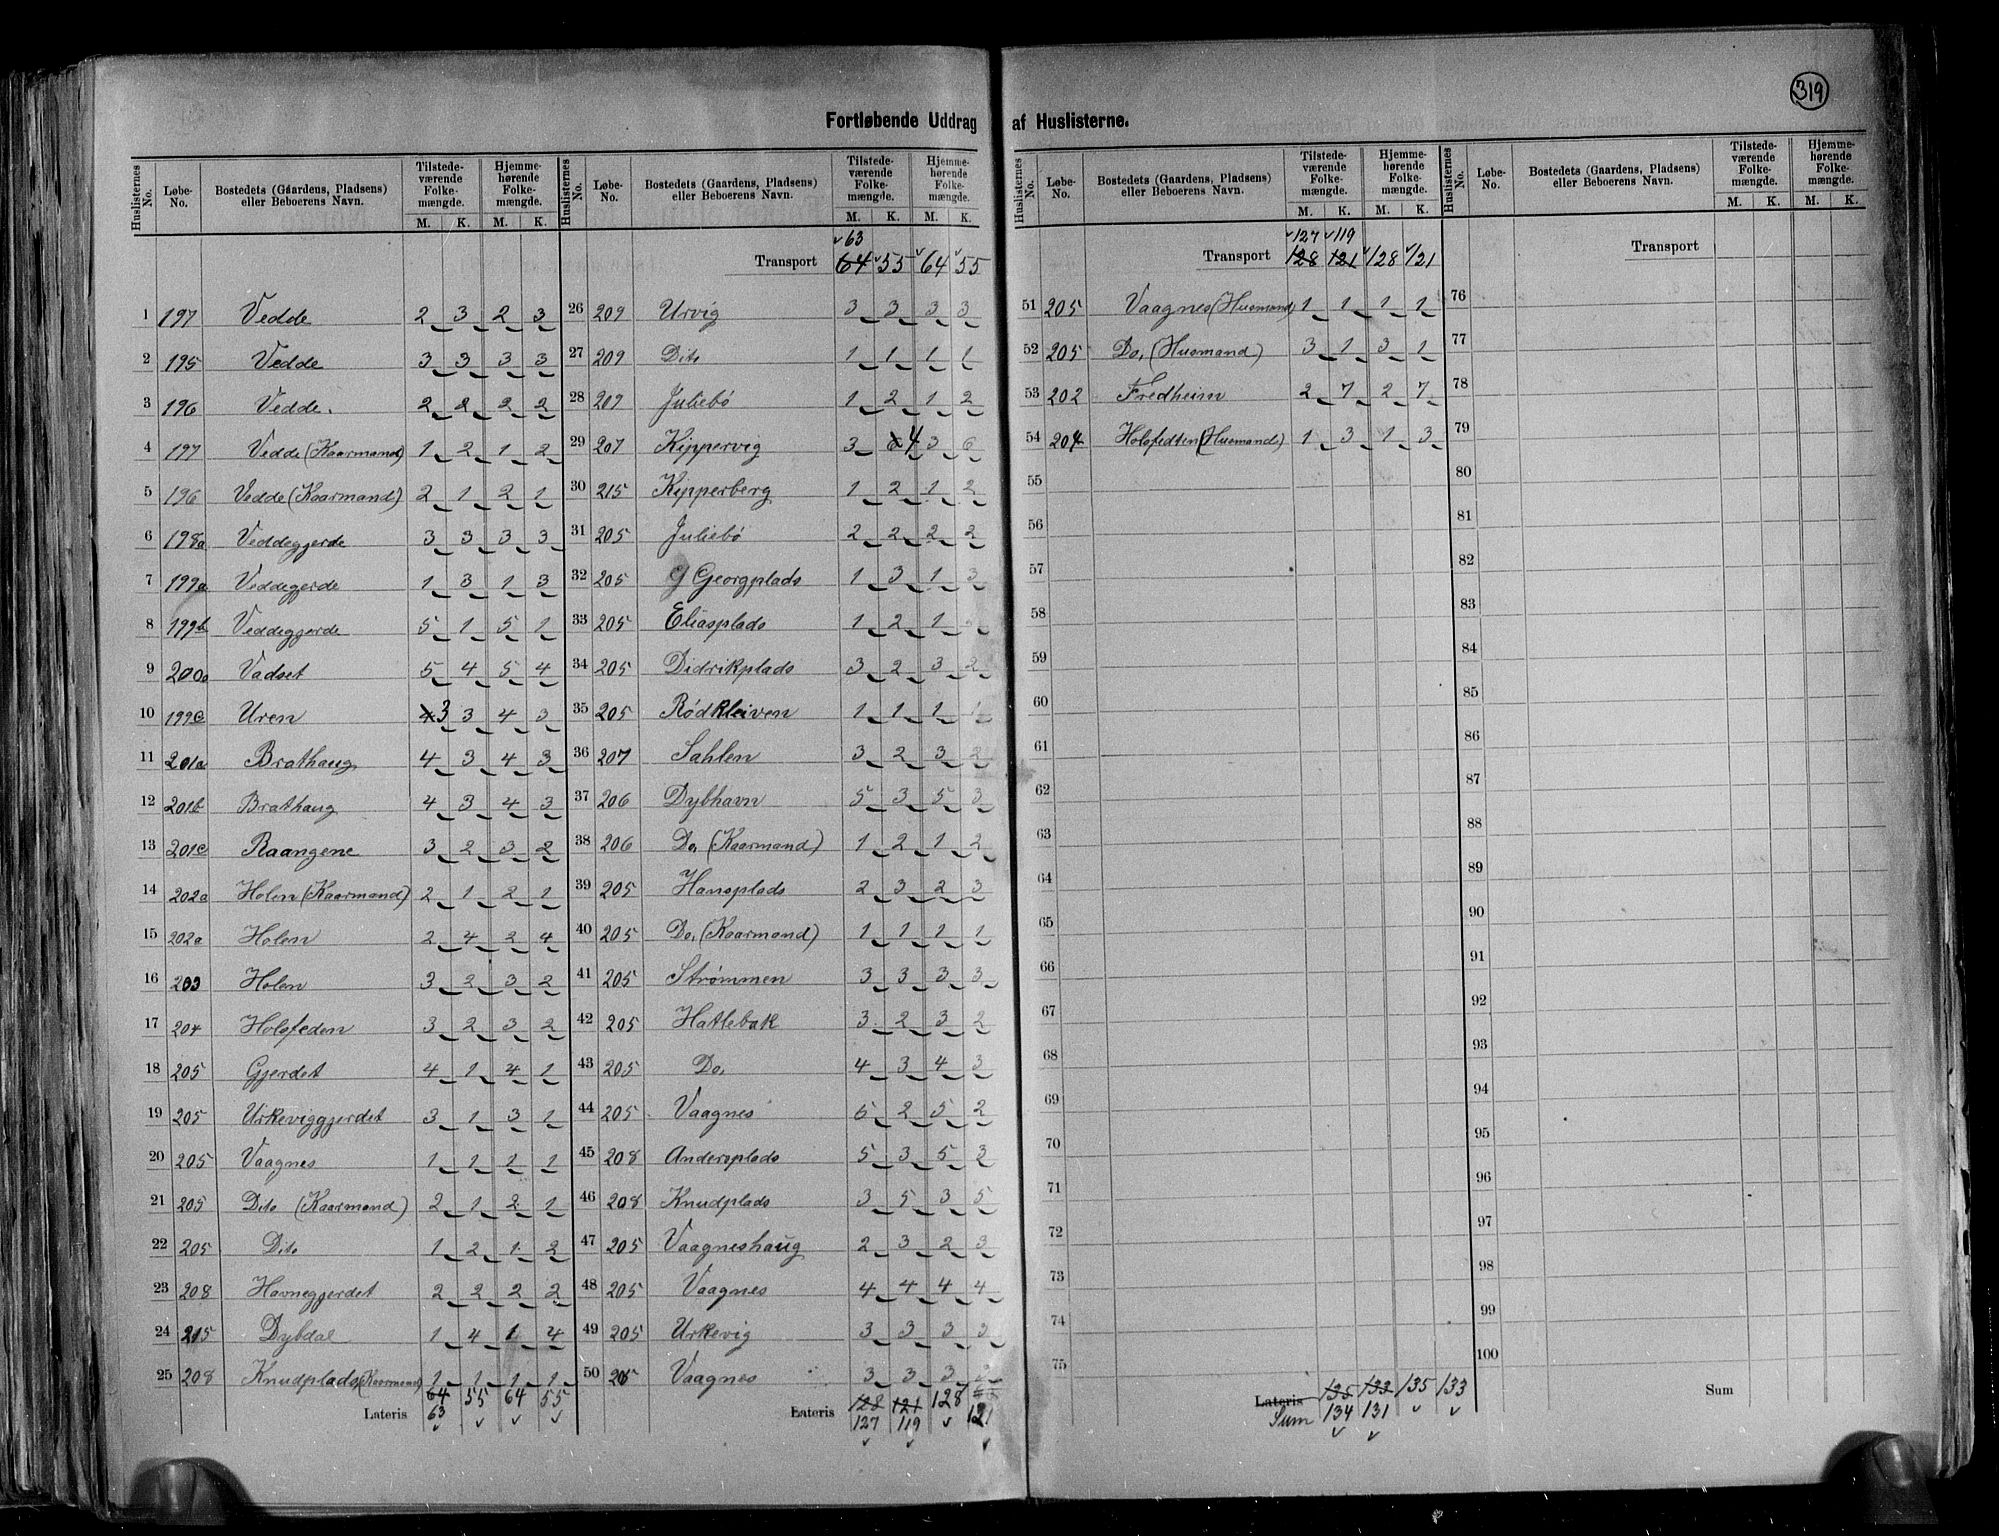 319
Fortløbende Uddrag af Huslisterne.
Huslisternes No. Løbe-No. Bostedets (Gaardens, Pladsens) eller Beboerens Navn. Tilstedeværende Folkemængde. M. K. Hjemmehørende Folkemængde. M. K.
1 197 Vedde 2 3 2 3
2 195 Vedde 3 3 3 3
3 196 Vedde. 2 2 2 2
4 197 Vedde (Kaarmand) 1 2 1 2
5 196 Vedde (Kaarmand) 2 1 2 1
6 198a Veddegjerde 3 3 3 3
7 199a Veddegjerde 1 3 1 3
8 199b Veddegjerde 5 1 5 1
9 200a Vadset 5 4 5 4
10 199c Uren 4 3 3 4 3
11 201a Brathaug 4 3 4 3
12 201b Brathaug 4 3 4 3
13 201c Raangene 3 2 3 2
14 202a Holen (Kaarmand) 2 1 2 1
15 202a Holen 2 4 2 4
16 203 Holen 3 2 3 2
17 204 Holsfeden 3 2 3 2
18 205 Gjerdet 4 1 4 1
19 205 Urkeviggjerdet 3 1 3 1
20 205 Vaagnes 1 1 1 1
21 205 Dito (Kaarmand) 2 1 2 1
22 205 Dito 1 2 1 2
23 208 Havnegjerdet 2 2 2 2
24 215 Dybdal 1 4 1 4
25 208 Knudplads (Kaarmand) 1 1 1 1
Lateris 64 55 64 55
63
Huslisternes No. Løbe-No. Bostedets (Gaardens, Pladsens) eller Beboerens Navn. Tilstedeværende Folkemængde. M. K. Hjemmehørende Folkemængde. M. K.
63
Transport 64 55 64 55
26 209 Urvig 3 3 3 3
27 209 Dito 1 1 1 1
28 209 Juliebø 1 2 1 2
29 207 Kippervig 3 6 4 3 6
30 215 Kipperberg 1 2 1 2
31 205 Juliebø 2 2 2 2
32 205 G Georgplads 1 3 1 3
33 205 Eliasplads 1 2 1
34 205 Didrikplads 3 2 3 2
35 205 Rødkleiven 1 1 1 1
36 207 Sahlen 3 2 3 2
37 206 Dybhavn 5 3 5 3
38 206 Do. (Kaarmand) 1 2 1 2
39 205 Hansplads 2 3 2 3
40 205 Do. (Kaarmand) 1 1 1 1
41 205 Strømmen 3 3 3 3
42 205 Hatlebak 3 2 3 2
43 205 Do. 4 3 4 3
44 205 Vaagnes 5 2 5 2
45 208 Andersplads 5 3 5 3
46 208 Knudplads 3 5 3 5
47 205 Vaagneshaug 2 3 2 3
48 205 Vaagnes 4 4 4 4
49 205 Urkevig 3 3 3 3
50 205 Vaagnes 3 3 3
Lateris 128 121 128 121
127 119
Huslisternes No. Løbe-No. Bostedets (Gaardens, Pladsens) eller Beboerens Navn. Tilstedeværende Folkemængde. M. K. Hjemmehørende Folkemængde. M. K.
127 119
Transport 128 121 128 121
51 205 Vaagnes (Husmand) 1 1 1 1
52 205 Do. (Husmand) 3 1 3 1
53 202 Fredheim 2 7 2 7
54 204 Holsfedten (Husmands) 1 3 1 3
55
56
57
58
59
60
61
62
63
64
65
66
67
68
69
70
71
72
73
74
75
Lateris 135 133 135 133
Sum 134 131
Huslisternes No. Løbe-No. Bostedets (Gaardens, Pladsens) eller Beboerens Navn. Tilstedeværende Folkemængde. M. K. Hjemmehørende Folkemængde. M. K.
Transport
76
77
78
79
80
81
82
83
84
85
86
87
88
89
90
91
92
93
94
95
96
97
98
99
100
Sum